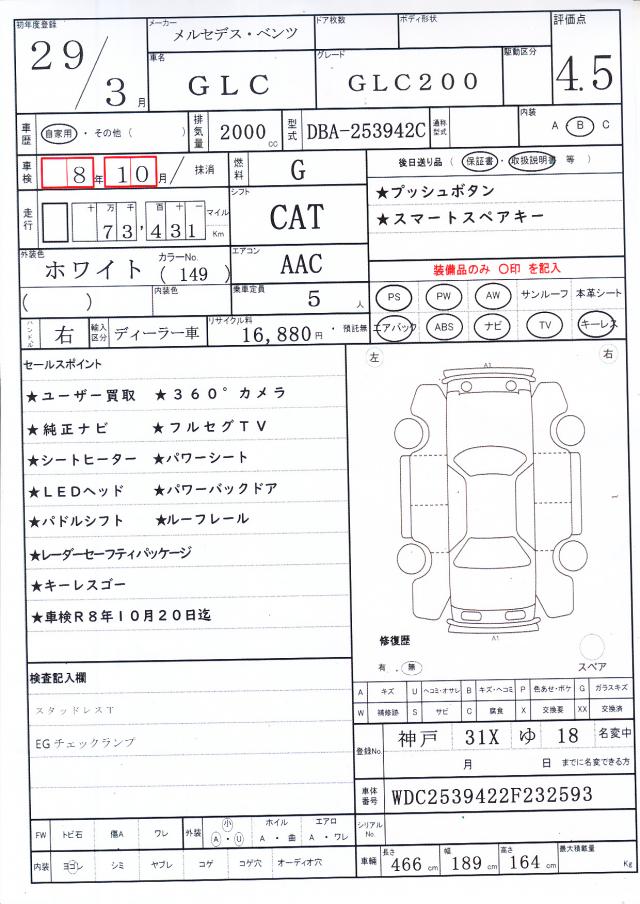 初年度登録 29/3月 メーカー メルセデス・ベンツ ドア枚数 ボディ形状 評価点 4.5
車名 GLC グレード GLC200 駆動区分
車歴 自家用 ・ その他 ( ) 排気量 2000 cc 型式 DBA-253942C 通称型式 内装 A B C
車検 8年10月/ 抹消 燃料 G 後日送り品 ( 保証書 ・ 取扱説明書 等 )
★プッシュボタン
走行 十 万 千 百 十 一 73,431 マイル Km シフト CAT ★スマートスペアキー
外装色 ホワイト カラーNo. ( 149 ) エアコン AAC 装備品のみ 〇印 を記入
( ) 内装色 乗車定員 5 人 PS PW AW サンルーフ 本革シート
ハンドル 右 輸入区分 ディーラー車 リサイクル料 16,880円 ・ 預託無 エアバック ABS ナビ TV キーレス
セールスポイント 左 右
A1
★ユーザー買取 ★360°カメラ
★純正ナビ ★フルセグTV
★シートヒーター ★パワーシート
★LEDヘッド ★パワーバックドア
★パドルシフト ★ルーフレール
★レーダーセーフティパッケージ
★キーレスゴー
★車検R8年10月20日迄
A1
修復歴
有 . 無 スペア
検査記入欄
スタッドレスT
EGチェックランプ
A キズ U ヘコミ・オサレ B キズ・ヘコミ P 色あせ・ボケ G ガラスキズ
W 補修跡 S サビ C 腐食 X 交換要 XX 交換済
登録No. 神戸 31X ゆ 18 名変中
月 日 までに名変できる方
車体番号 WDC2539422F232593
FW トビ石 傷A ワレ 外装 小 A ・ U ホイル A ・ 曲 エアロ A ・ ワレ シリアルNo.
内装 ヨゴレ シミ ヤブレ コゲ コゲ穴 オーディオ穴 車輌 長さ 466 cm 幅 189 cm 高さ 164 cm 最大積載量 Kg